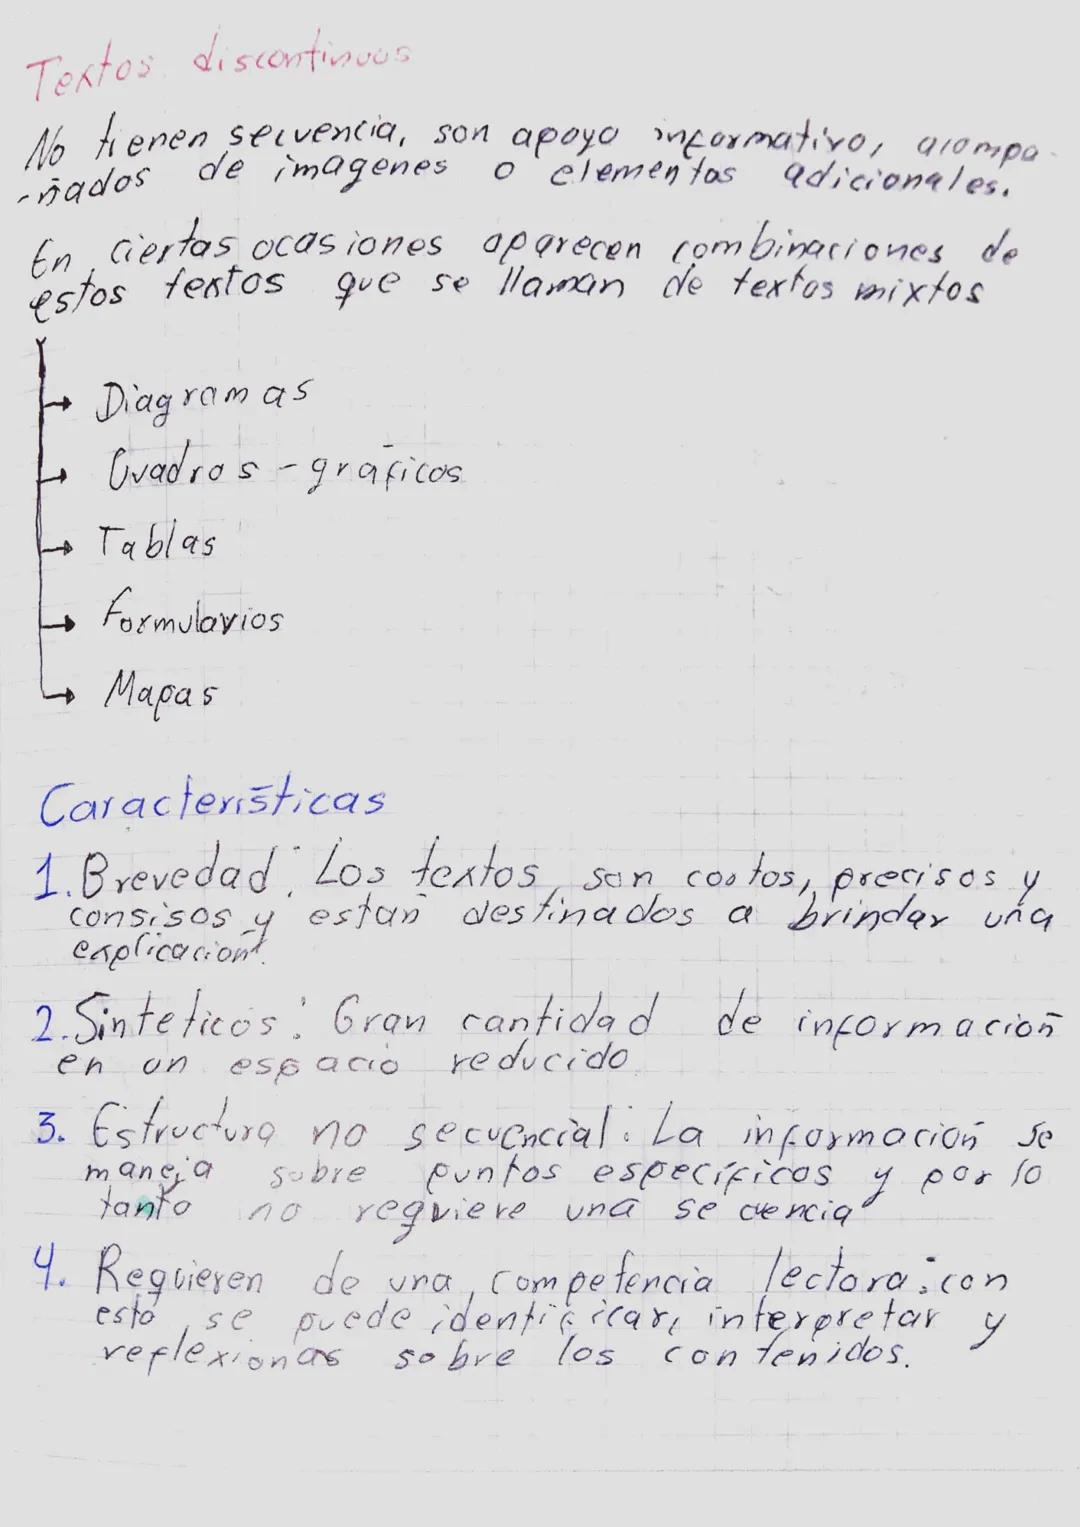 Textos discontinuos
No tienen secuencia, son apoyo informativo, acompa-
-ñados de imagenes o elementos adicionales.
En ciertas ocasiones aparecen combinaciones de
estos textos que se llaman de textos mixtos
Diagramas
Cuadros - gráficos
Tablas
Formularios
Mapas
Características
1. Brevedad: Los textos, son cortos, precisos y
consisos y están destinados a brindar una
explicación.
2. Sinteticos: Gran cantidad de información
en un espacio reducido
3. Estructura no secuencial: La información se
maneja sobre puntos específicos y por lo
tanto no requiere una secuencia
4. Requieren de una competencia lectora: con
esto se puede identificar, interpretar y
reflexionas sobre los contenidos.